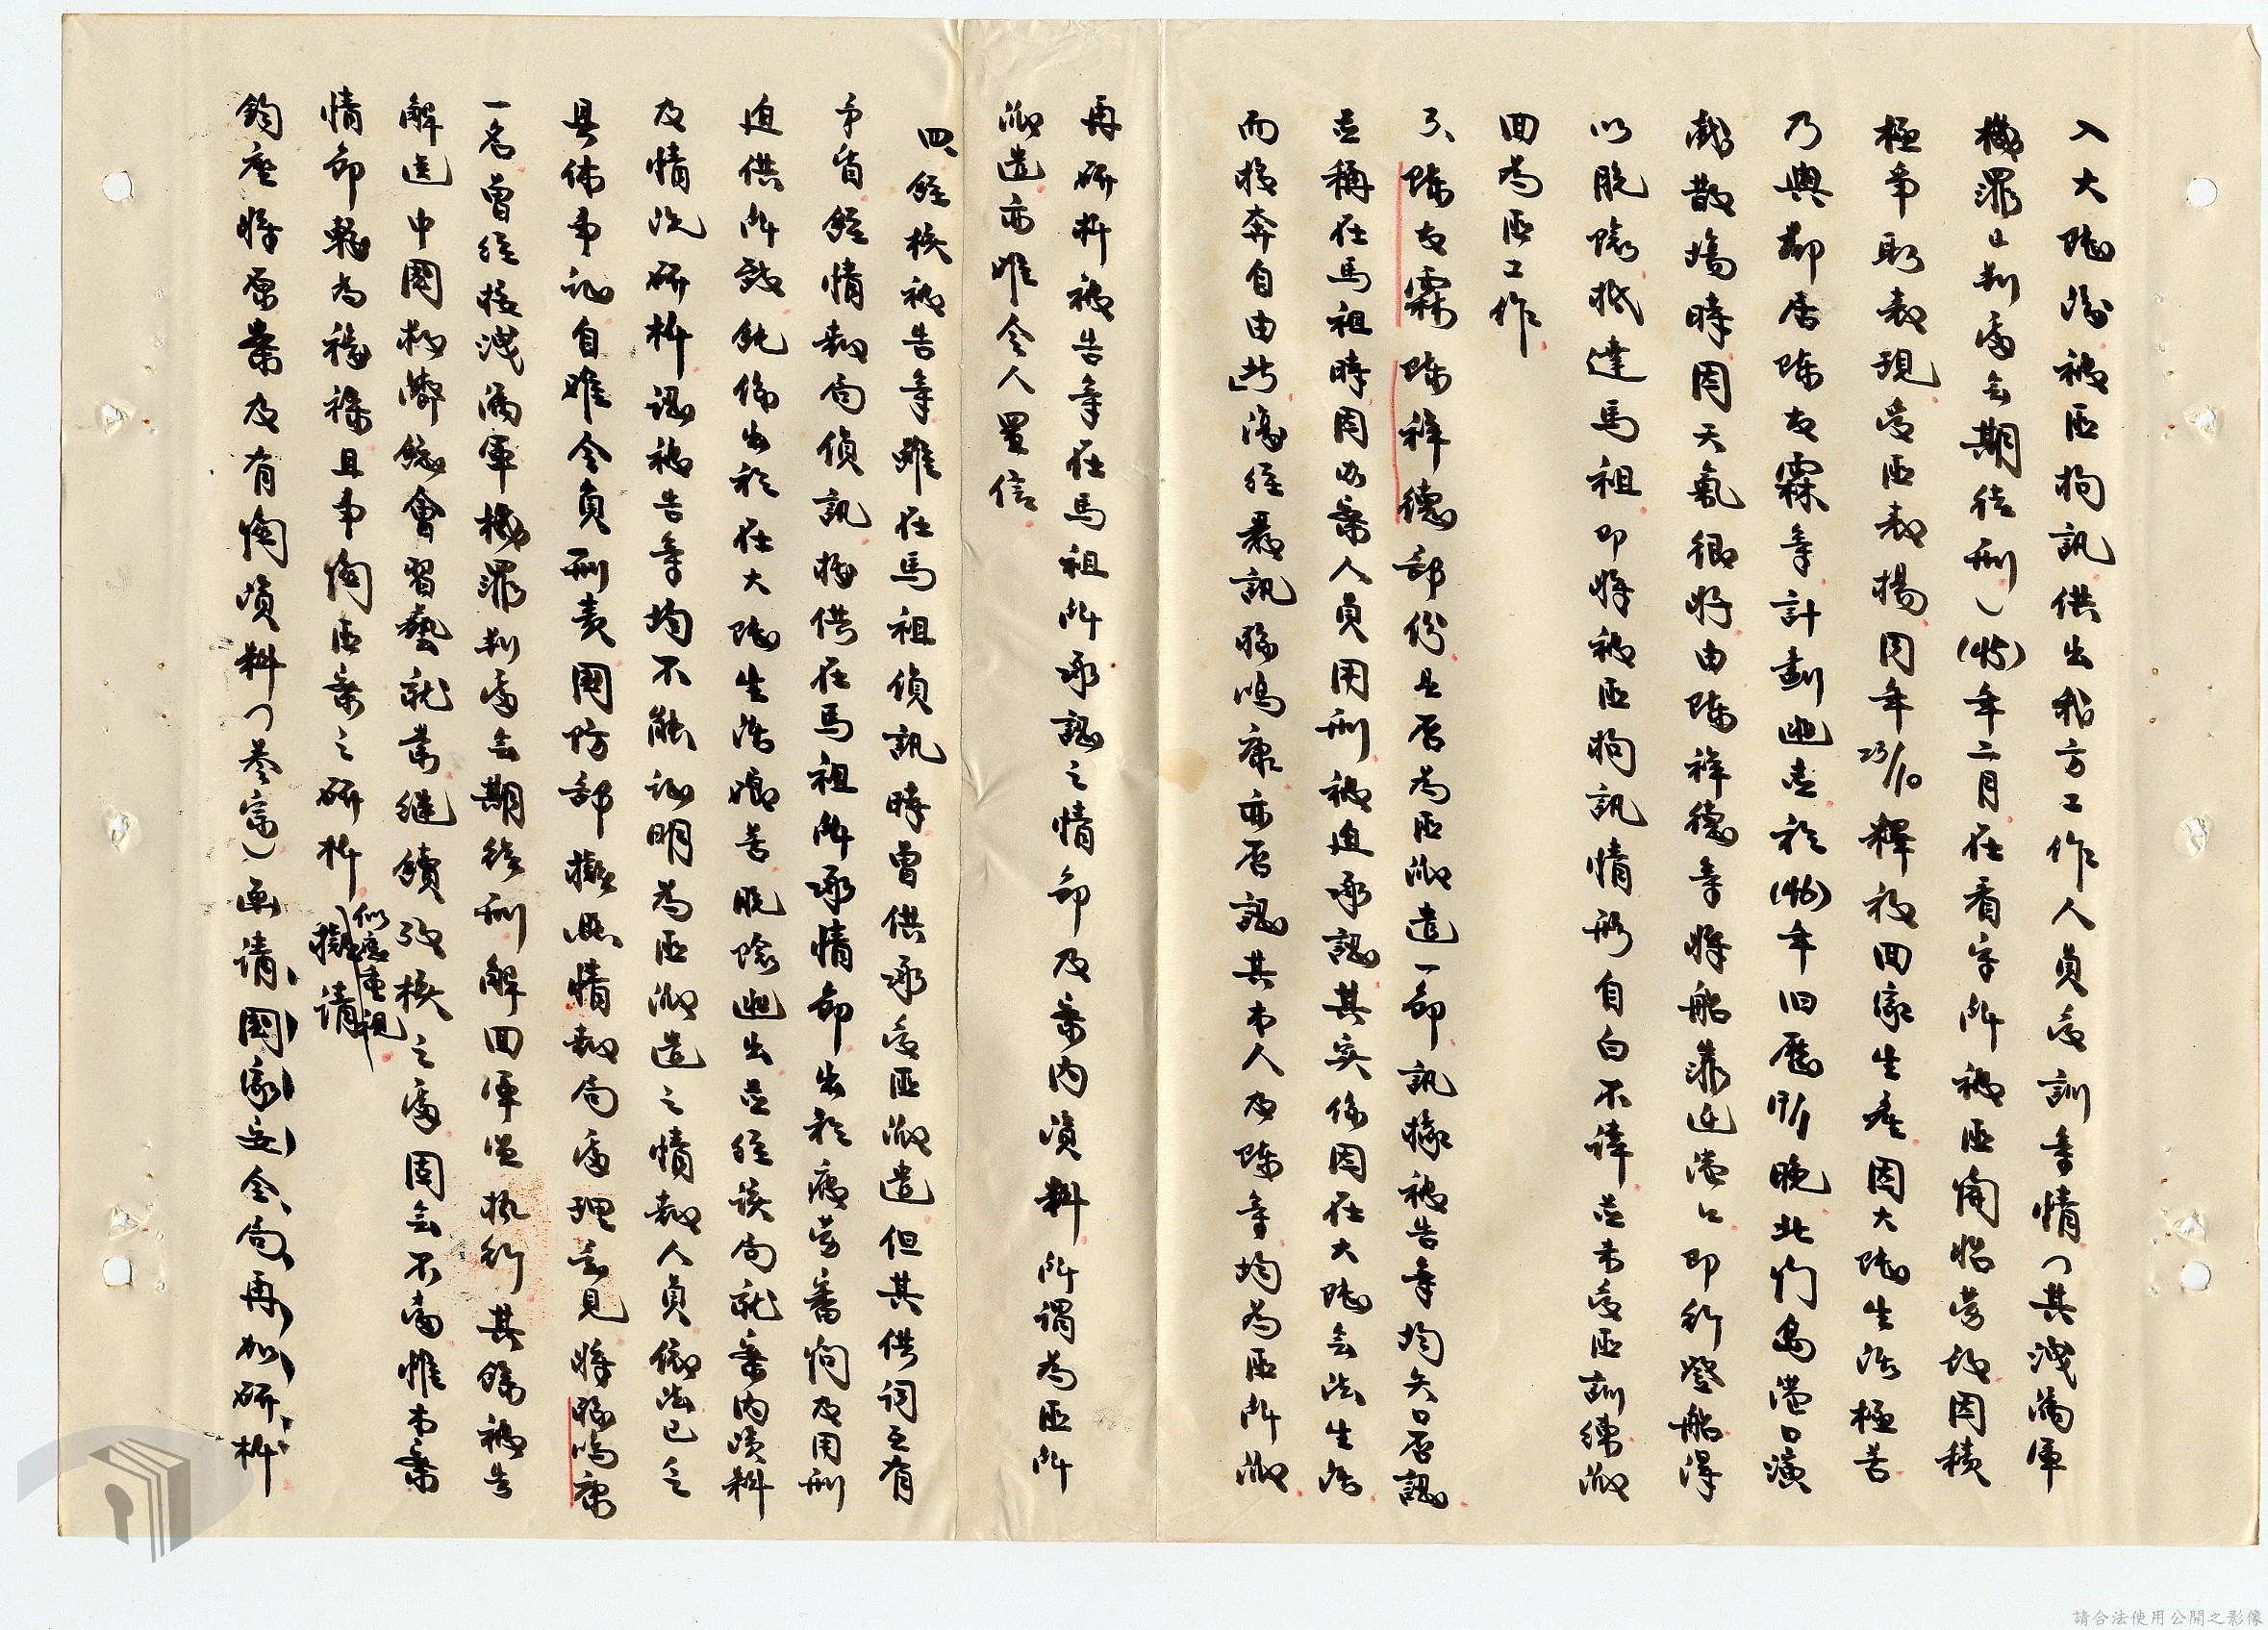 入大陸後被匪拘訊供出我方工作人員受訓等情（其洩漏軍
機罪止判處無期徒刑）(45)年二月在看守所被匪調服勞役因積
極爭取表現受匪表揚同年23/10釋放回家生產因大陸生活極苦
乃與鄰居陳友霖等計劃逃亡於(46)年旧曆 晚北竹島港口演
戲散場時因天氣很好由陳祥德等將船靠近港口即行登船得
以脫險抵達馬祖即將被匪拘訊情形自白不諱並未受匪訓練派
回為匪工作
3、陳友霖陳祥德部份是否為匪派遣一節訊據被告等均矢口否認
並稱在馬祖時因辦案人員用刑被迫承認其實係因在大陸無法生活
而投奔自由此復經最訊 鳴康亦否認其本人及陳等均為匪所派
再研析被告等在馬祖所承認之情節及案內資料所謂為匪所
派遣亦難令人置信
四、經核被告等雖在馬祖偵訊時曾供承受匪派遣但其供詞互有
矛盾經情報局偵訊據供在馬祖所承情節出於疲勞審問及用刑
迫供所致純係出於在大陸生活艱苦脫險逃出並經該局就案內資料
及情況研析認被告等均不能証明為匪派遣之情報人員依法已乏
具体事証自難令負刑責國防部擬照情報局處理意見將 鳴康
一名曾經按洩漏軍機罪判處無期徒刑解回軍監執行其餘被告
解送中國救濟總會習藝就業繼續考核之處固無不當惟本案
情節較為複雜且事關匪案之研析似應重視擬請
鈞座將原卷及有關資料（卷宗）函請國家安全局再加研析
請合法使用公開之影像